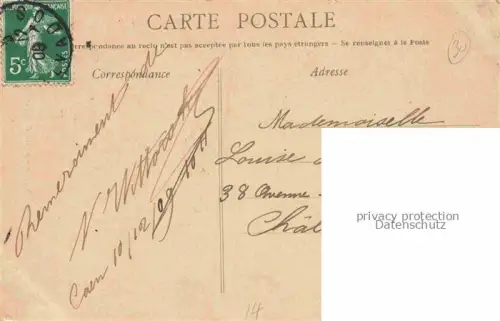 CARTE POSTALE
La Correspondance au recto n'est pas acceptée par tous les pays étrangers — Se renseigner à la Poste
Correspondance
Adresse
5c
09
3
Remerciement de
Caen 10/12 09
Mademoiselle
Louise
38 Avenue
Châl
14
privacy protection
Datenschutz